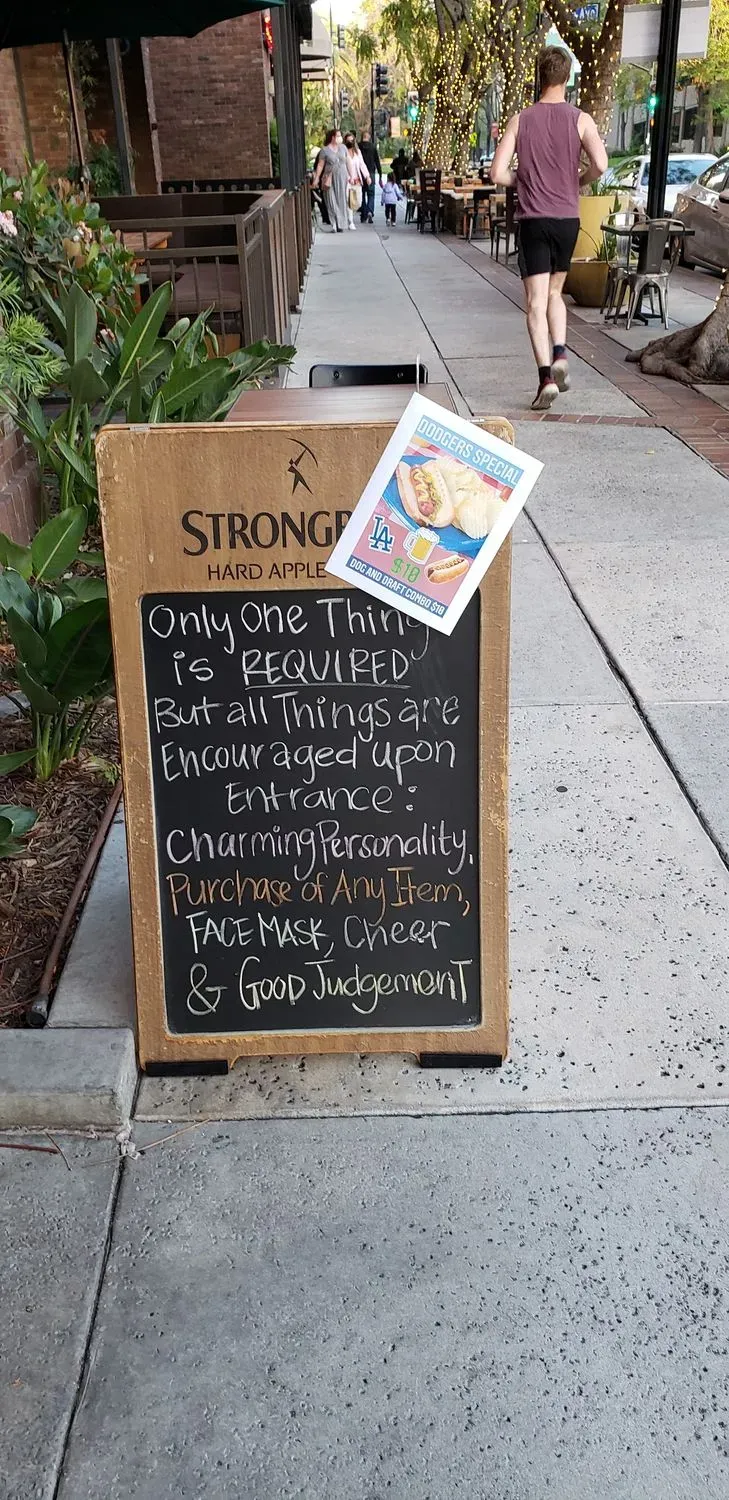 STRONGB
HARD APPLE
DODGERS SPECIAL
LA
$18
DOG AND DRAFT COMBO $18
Only One Thing
is REQUIRED
But all Things are
Encouraged upon
Entrance:
Charming Personality,
Purchase of Any Item,
FACE MASK, Cheer
& Good Judgement